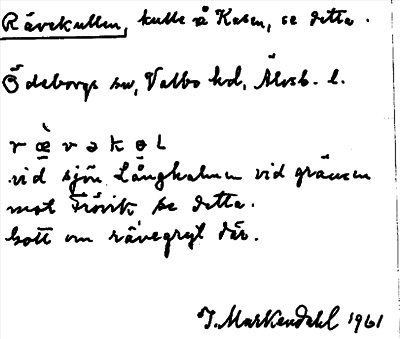 Rävekullen, kulle å Kasen, se detta.
Ödeborgs sn, Valbo hd, Älvsb. l.
r æ̀ v ə k ɵ L
vid sjön Långhalmen vid gränsen
mot Frövik se detta.
Gott om rävegryt där.
J. Markendahl 1961